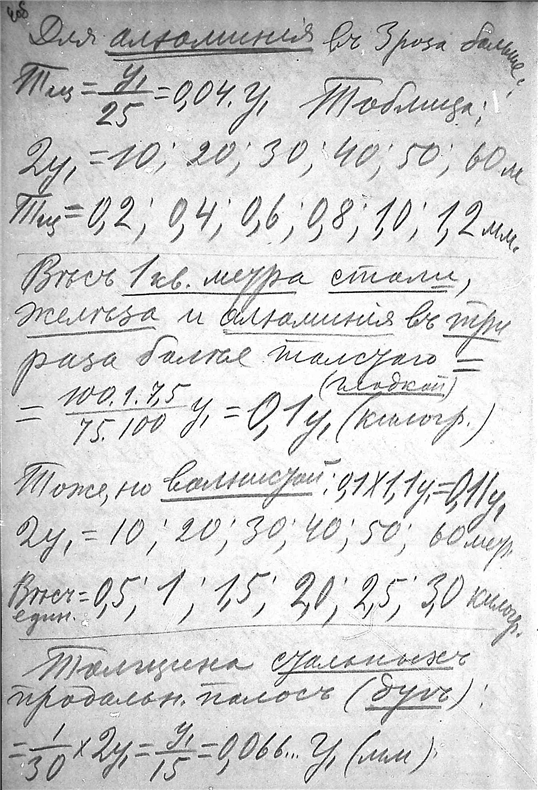 408
Для алюминія въ 3 раза больше:
Тлщ = y₁/25 = 0,04.y₁ Таблица:
2y₁ = 10; 20; 30; 40; 50; 60 м
Тлщ = 0,2; 0,4; 0,6; 0,8; 1,0; 1,2 мм.
Вѣсъ 1 кв. метра стали,
желѣза и алюминія въ три
раза болѣе толстаго =
(гладкой)
= 100.1.7,5/75.100 y₁ = 0,1y₁ (килогр.)
Тоже, но волнистой: 0,1×1,1y₁=0,11y₁
2y₁ = 10; 20; 30; 40; 50; 60 метр.
Вѣсъ един. = 0,5; 1; 1,5; 2,0; 2,5; 3,0 килогр.
Толщина стальныхъ
продольн. полосъ (дугъ):
= 1/30 × 2y₁ = y₁/15 = 0,066... y₁ (мм)